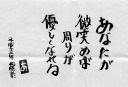 あなたが
微笑めば
周りが
優しくなれる